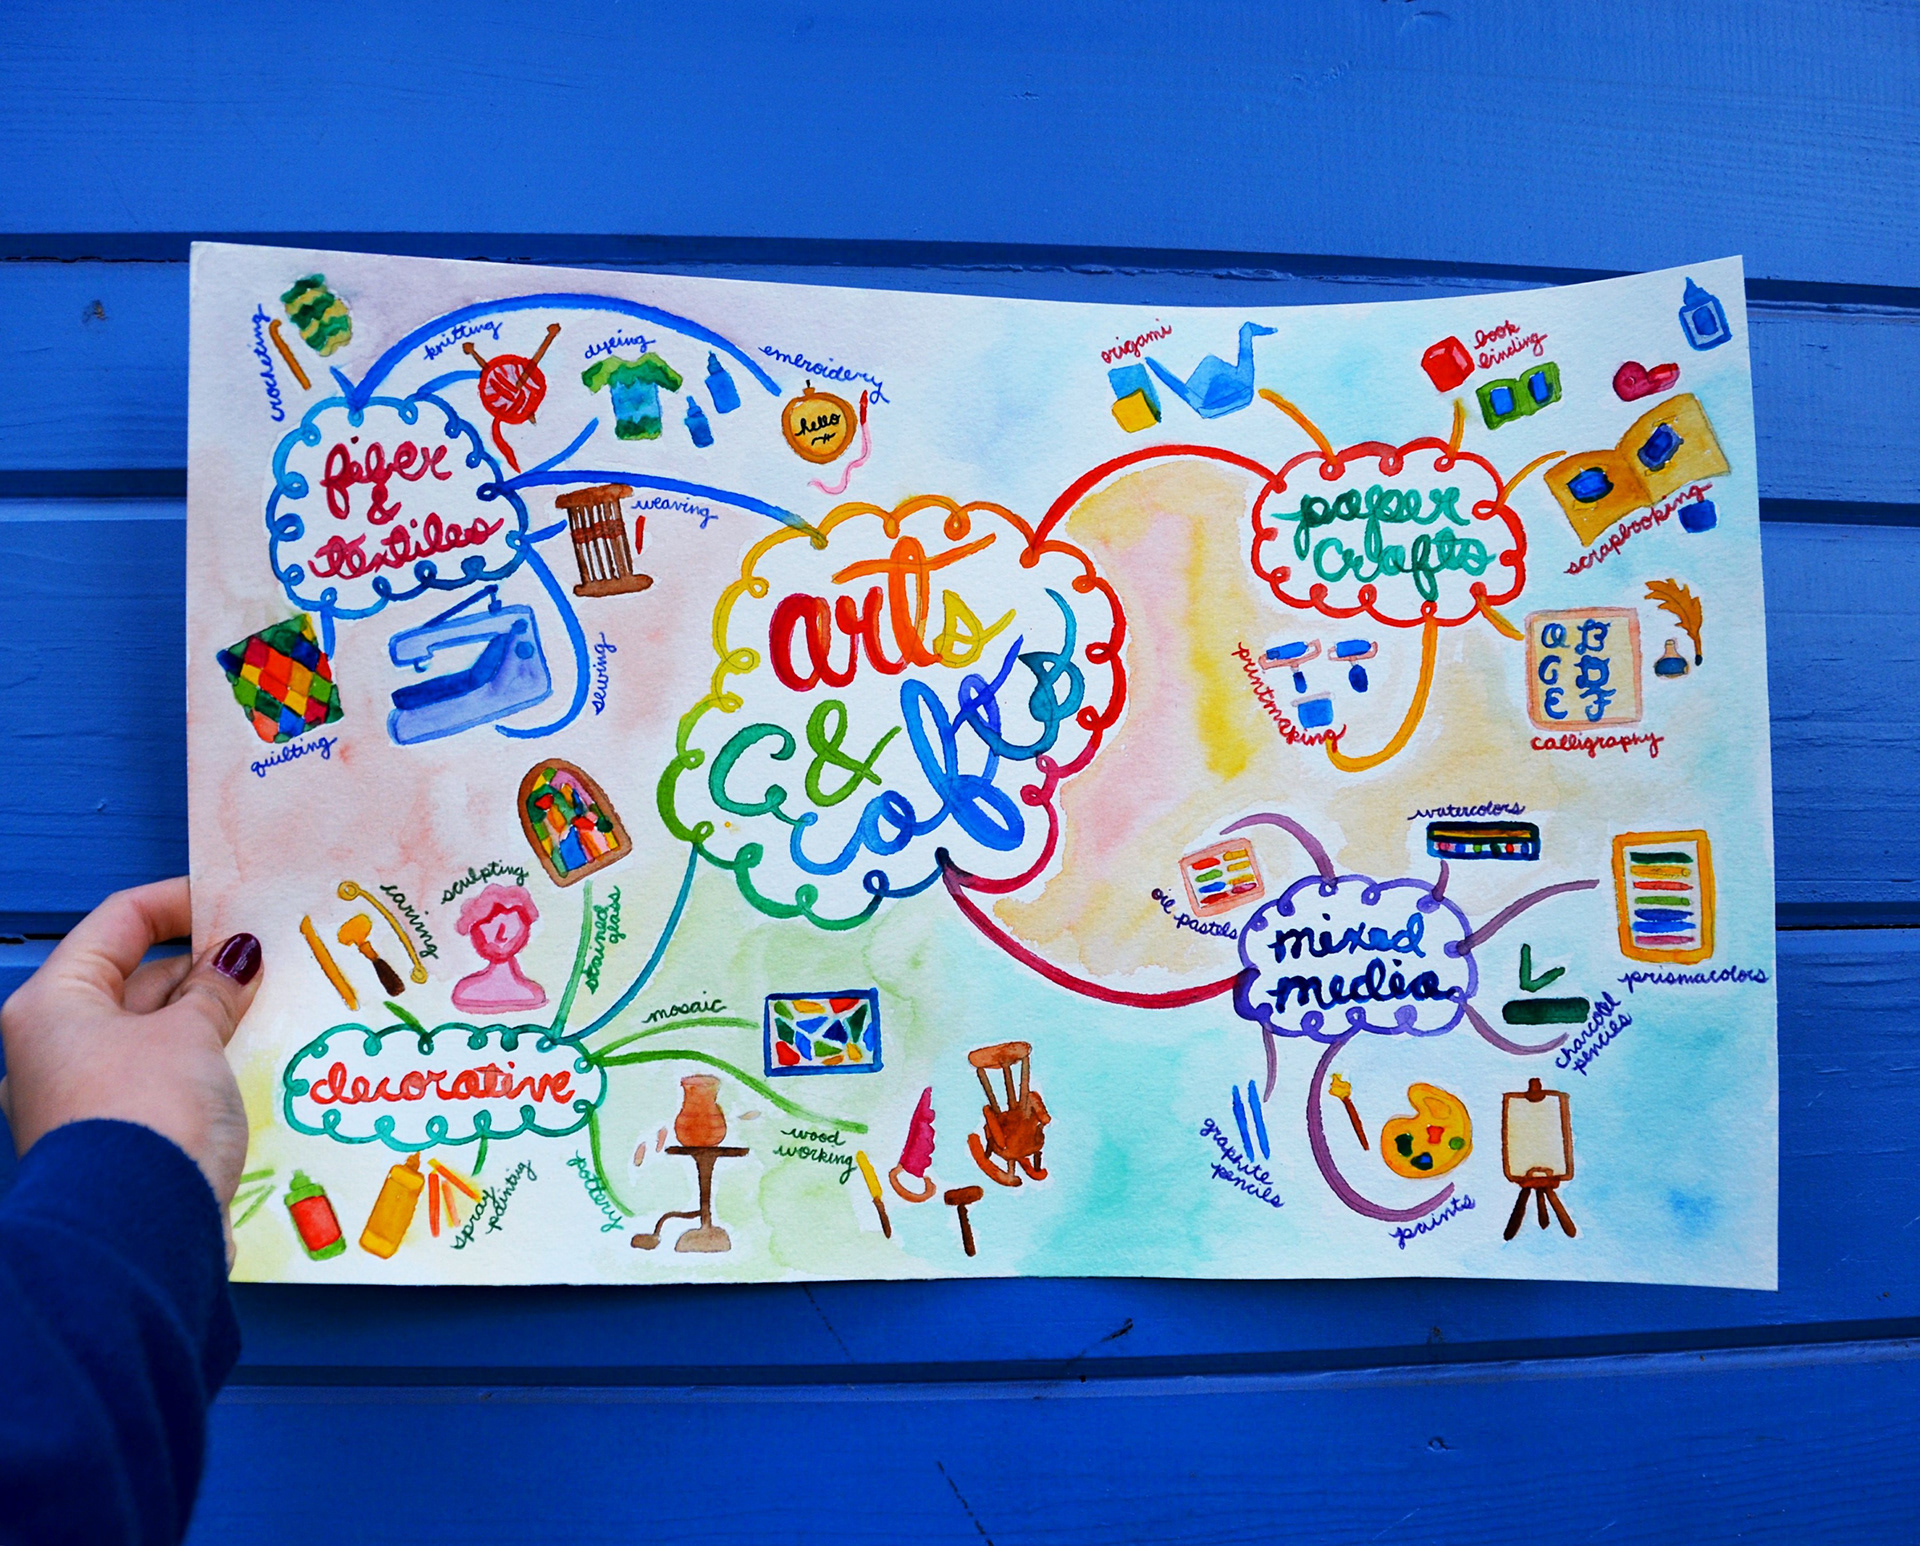 arts
&
crafts
fiber
&
textiles
crocheting
knitting
dyeing
embroidery
hello
weaving
sewing
quilting
paper
crafts
origami
book
binding
scrapbooking
calligraphy
printmaking
mixed
media
oil pastels
watercolors
prismacolors
charcoal
pencils
paints
graphite
pencils
decorative
caring
sculpting
stained
glass
mosaic
wood
working
pottery
spray
painting